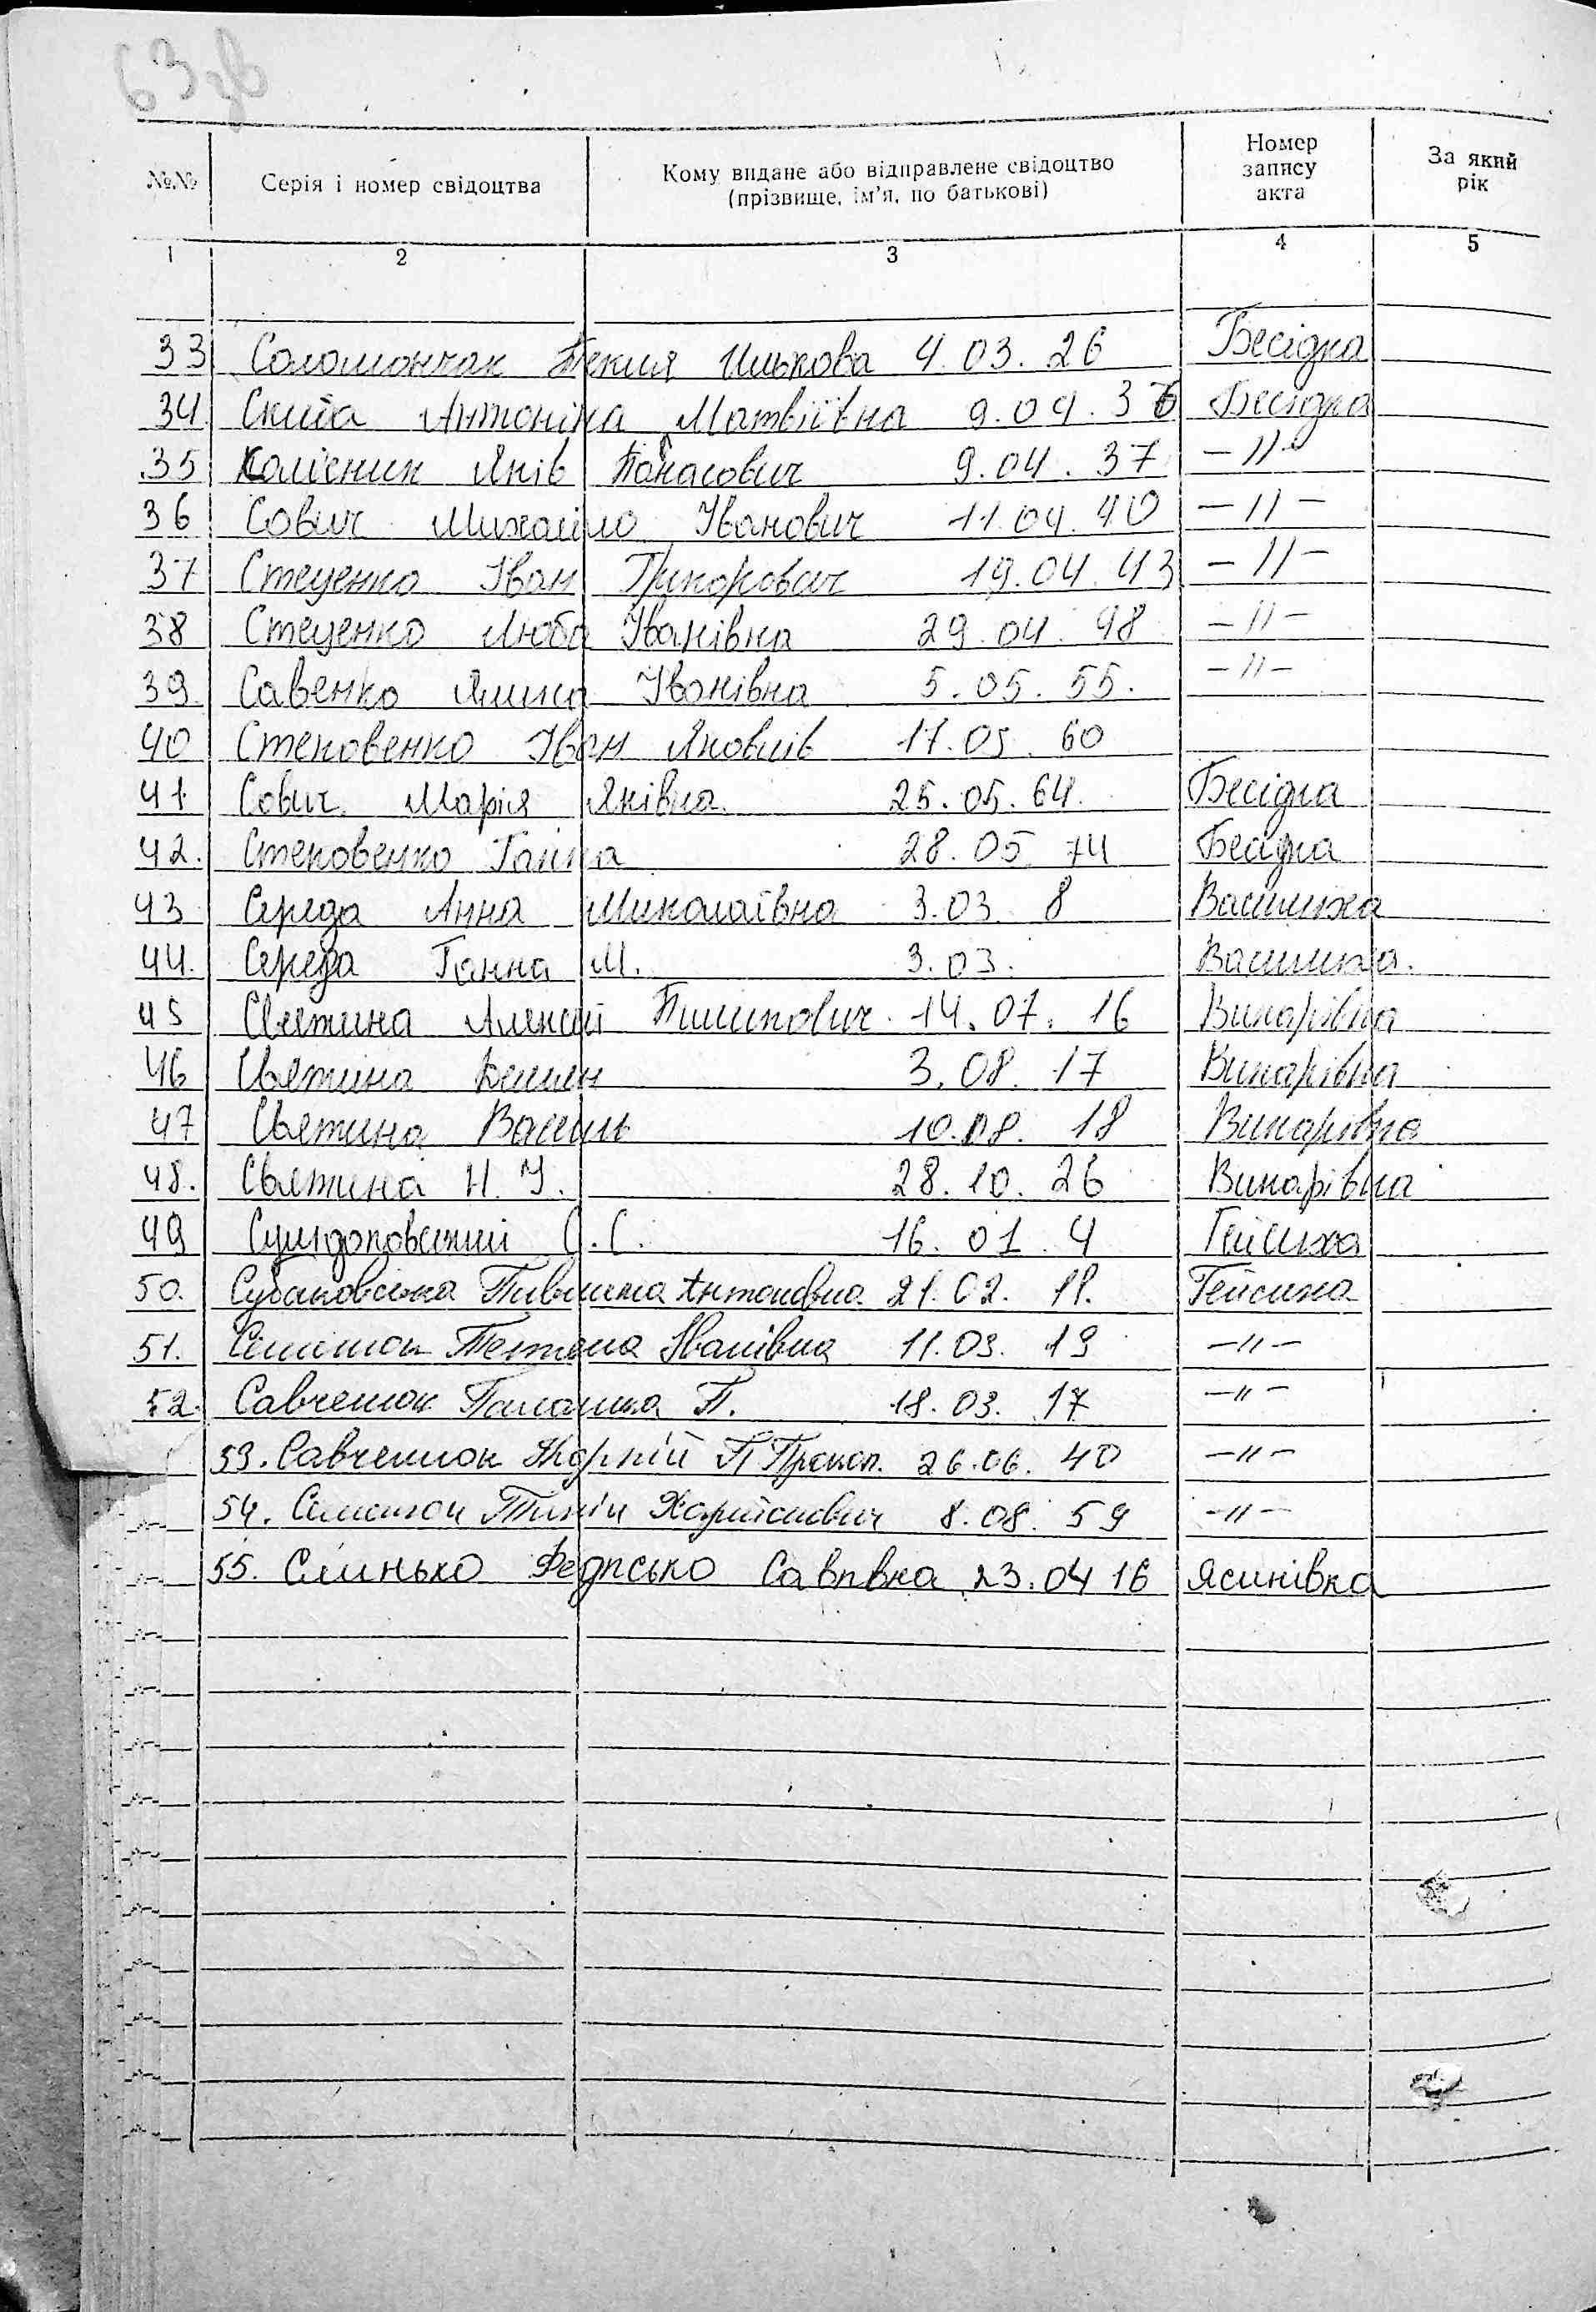 63 зв
№№ Серія і номер свідоцтва Кому видане або відправлене свідоцтво (прізвище, ім’я, по батькові) Номер запису акта За який рік
1 2 3 4 5
33 Соломончак Текля Ількова 4.03.26 Бесідка
34 Скиба Антоніна Матвіївна 9.04.36 Бесідка
35 Колісник Яків Панасович 9.04.37 -//-
36 Сович Михайло Іванович 11.04.40 -//-
37 Стеценко Іван Григорович 19.04.43 -//-
38 Стеценко Люба Іванівна 29.04.48 -//-
39. Савенко Ялина Іванівна 5.05.55. -//-
40 Степовенко Іван Яковлів 17.05.60
41 Сович Марія Яківна 25.05.64. Бесідка
42. Степовенко Ганна 28.05 74 Бесідка
43 Середа Анна Миколаївна 3.03 8 Василиха
44. Середа Ганна М. 3.03. Василиха.
45 Святина Алексій Пилипович 14.07.16 Винарівка
46 Святина Демян 3.08.17 Винарівка
47 Святина Василь 10.08.18 Винарівка
48. Святина Н. І. 28.10.26 Винарівка
49 С.С. 16.01.4 Гейсиха
50. Антонівна 21.02.11. Гейсиха
51. Тетяна Іванівна 11.03.19 -//-
52. Савченюк Палажка П. 18.03.17 -//-
53. Савченюк Корній П Прокоп. 26.06.40 -//-
54. Харитонович 8.08.59 -//-
55. Слинько Федоська Савівна 23.04 16 Ясинівка